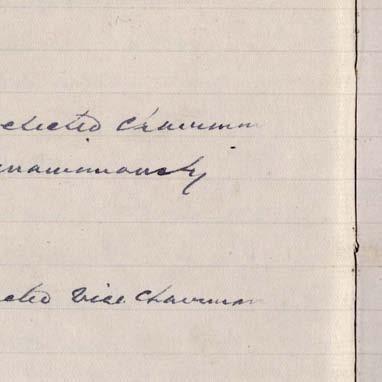 elected Chairman
unanimously
cted Vice Chairman